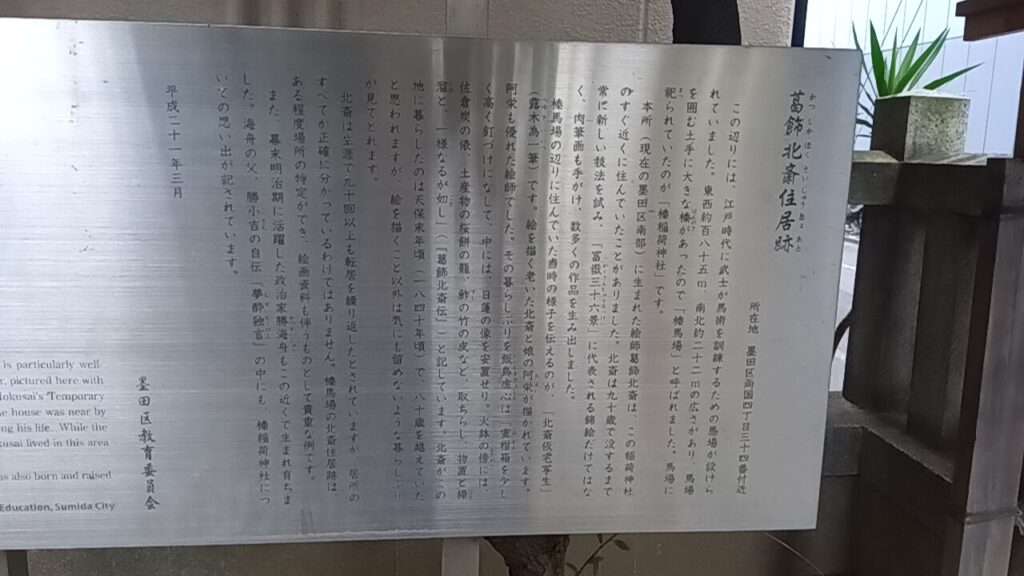 かつしかほくさいじゅうきょあと
葛飾北斎住居跡
所在地　墨田区両国四丁目三十四番付近
この辺りには、江戸時代に武士が馬術を訓練するための馬場が設けら
れていました。東西約百八十五m、南北約二十二mの広さがあり、馬場
を囲む土手に大きな榛があったので「榛馬場」と呼ばれました。馬場に
祀られていたのが「榛稲荷神社」です。
本所（現在の墨田区南部）に生まれた絵師葛飾北斎は、この稲荷神社
のすぐ近くに住んでいたことがありました。北斎は九十歳で没するまで
常に新しい技法を試み、「富嶽三十六景」に代表される錦絵だけではな
く、肉筆画も手がけ、数多くの作品を生み出しました。
榛馬場の辺りに住んでいた当時の様子を伝えるのが、「北斎仮宅写生」
（露木為一筆）です。絵を描く老いた北斎と娘の阿栄が描かれています。
阿栄も優れた絵師でした。その暮らしぶりを飯島虚心は「蜜柑箱を少し
く高く釘づけになして、中には、日蓮の像を安置せり。火鉢の傍には、
佐倉炭の俵、土産物の桜餅の籠、鮓の竹の皮など、取ちらし、物置と掃
溜と、一様なるが如し」（『葛飾北斎伝』）と記しています。北斎がこの
地に暮らしたのは天保末年頃（一八四十年頃）で、八十歳を越えていた
と思われますが、絵を描くこと以外は気にも留めないような暮らしぶり
が見てとれます。
北斎は生涯で九十回以上も転居を繰り返したとされていますが、居所の
すべてが正確に分かっているわけではありません。榛馬場の北斎住居跡は
ある程度場所の特定ができ、絵画資料も伴うものとして貴重な例です。
また、幕末明治期に活躍した政治家勝海舟もこの近くで生まれ育ちま
した。海舟の父、勝小吉の自伝「夢酔独言」の中にも、榛稲荷神社につ
いての思い出が記されています。
平成二十一年三月
墨田区教育委員会
is particularly well-
r, pictured here with
Hokusai's "Temporary
he house was near by
ng his life. While the
kusai lived in this area
as also born and raised
Education, Sumida City